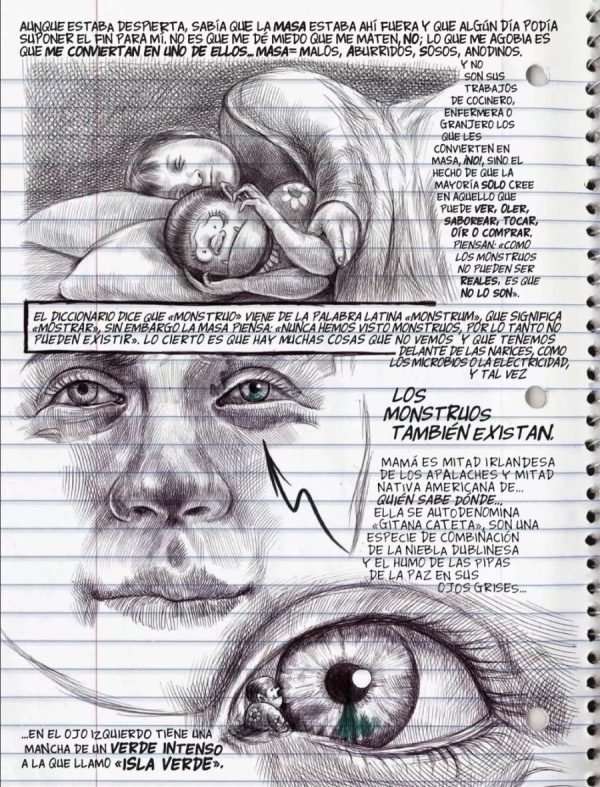 AUNQUE ESTABA DESPIERTA, SABÍA QUE LA MASA ESTABA AHÍ FUERA Y QUE ALGÚN DÍA PODÍA
SUPONER EL FIN PARA MÍ. NO ES QUE ME DÉ MIEDO QUE ME MATEN, NO; LO QUE ME AGOBIA ES
QUE ME CONVIERTAN EN UNO DE ELLOS... MASA= MALOS, ABURRIDOS, SOSOS, ANODINOS.
Y NO
SON SUS
TRABAJOS
DE COCINERO,
ENFERMERA O
GRANJERO LOS
QUE LES
CONVIERTEN EN
MASA, ¡NO!, SINO EL
HECHO DE QUE LA
MAYORÍA SOLO CREE
EN AQUELLO QUE
PUEDE VER, OLER,
SABOREAR, TOCAR,
OÍR O COMPRAR.
PIENSAN: «COMO
LOS MONSTRUOS
NO PUEDEN SER
REALES, ES QUE
NO LO SON».
EL DICCIONARIO DICE QUE «MONSTRUO» VIENE DE LA PALABRA LATINA «MONSTRUM», QUE SIGNIFICA
«MOSTRAR», SIN EMBARGO LA MASA PIENSA: «NUNCA HEMOS VISTO MONSTRUOS, POR LO TANTO NO
PUEDEN EXISTIR». LO CIERTO ES QUE HAY MUCHAS COSAS QUE NO VEMOS Y QUE TENEMOS
DELANTE DE LAS NARICES, COMO
LOS MICROBIOS O LA ELECTRICIDAD,
Y TAL VEZ
LOS
MONSTRUOS
TAMBIÉN EXISTAN.
MAMÁ ES MITAD IRLANDESA
DE LOS APALACHES Y MITAD
NATIVA AMERICANA DE...
QUIÉN SABE DÓNDE...
ELLA SE AUTODENOMINA
«GITANA CATETA», SON UNA
ESPECIE DE COMBINACIÓN
DE LA NIEBLA DUBLINESA
Y EL HUMO DE LAS PIPAS
DE LA PAZ EN SUS
OJOS GRISES...
...EN EL OJO IZQUIERDO TIENE UNA
MANCHA DE UN VERDE INTENSO
A LA QUE LLAMO «ISLA VERDE».